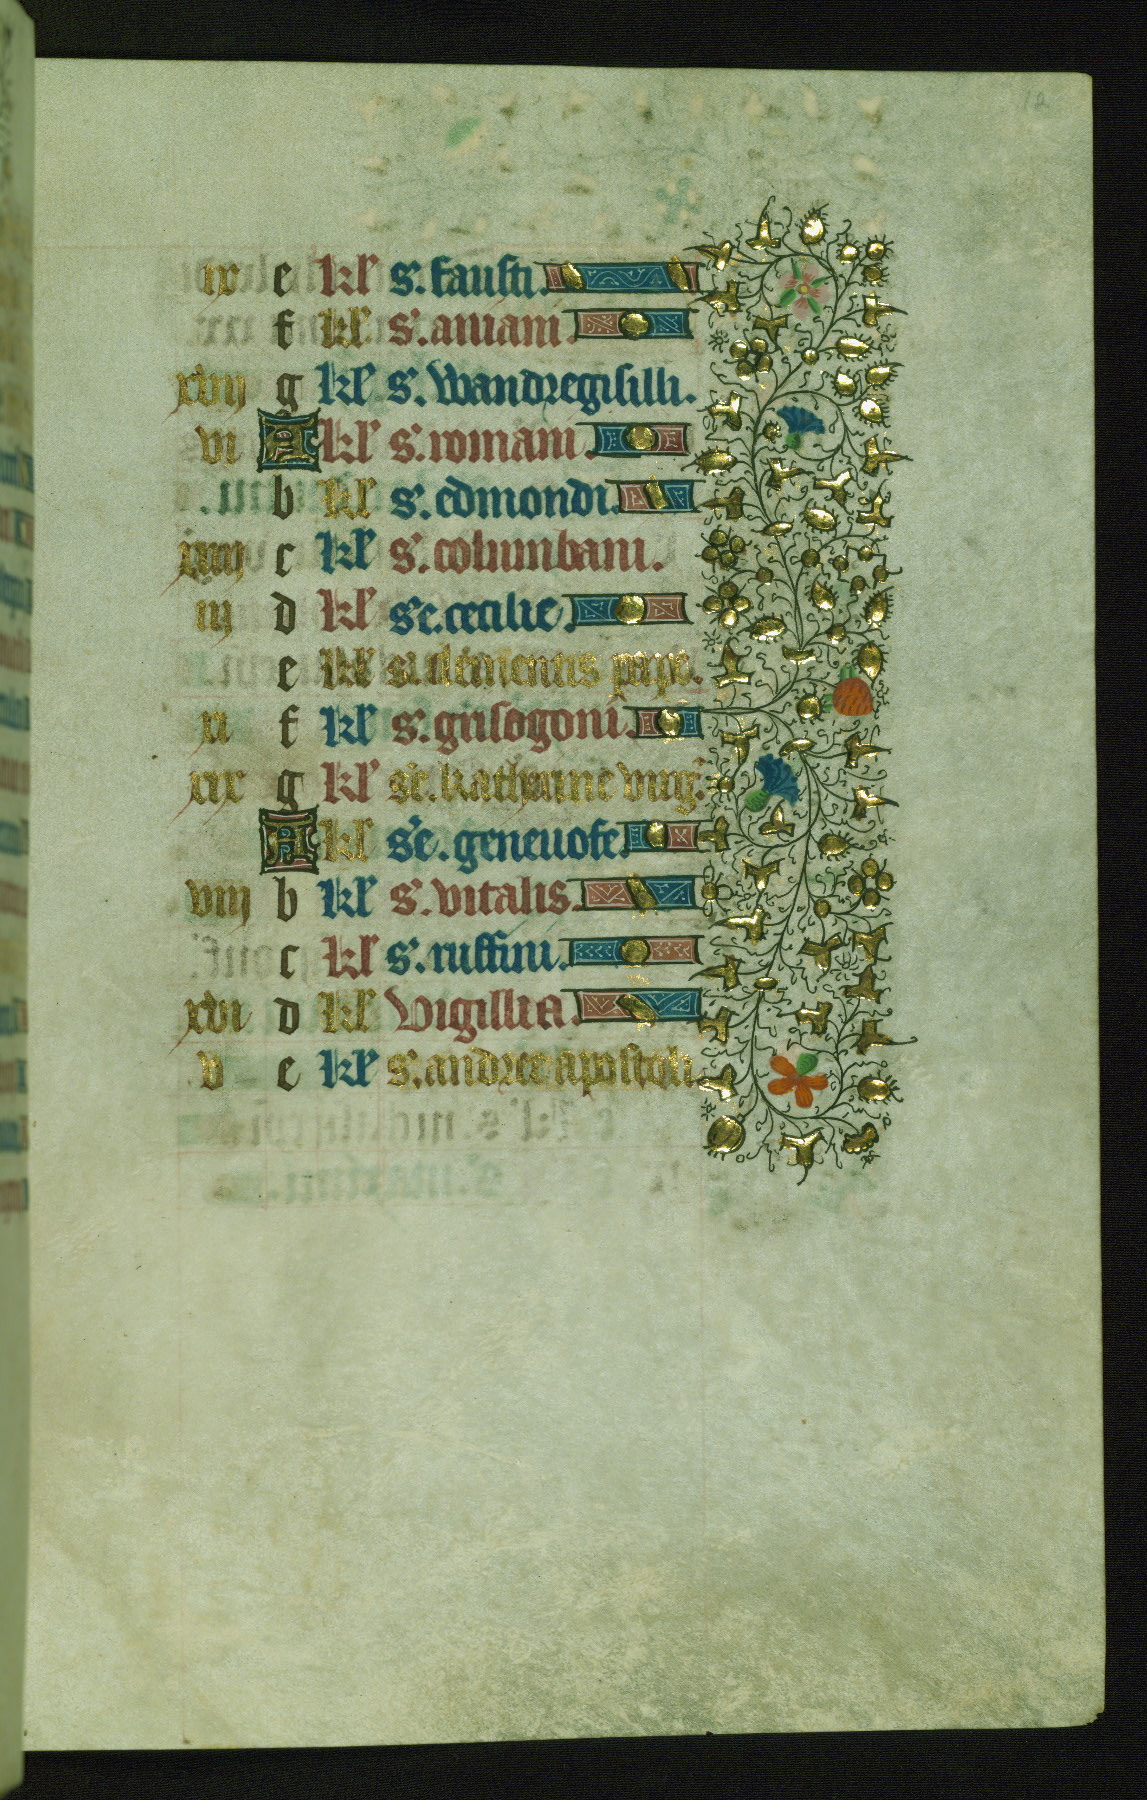 12
ix e kl' s'. fausti.
f kl' s'. aniani.
xvii g kl' s'. Wandregisilli.
vi A kl' s'. romani.
b kl' s'. edmondi.
xiiii c kl' s'. columbani.
iii d kl' s'e. cecilie.
e kl' s'. clementis pape.
xi f kl' s'. grisogoni.
xix g kl' s'e. katherine virg'.
A kl' s'e. geneuofe.
viii b kl' s'. vitalis.
c kl' s'. ruffini.
xvi d kl' Vigillia.
v e kl' s'. andree apostoli.